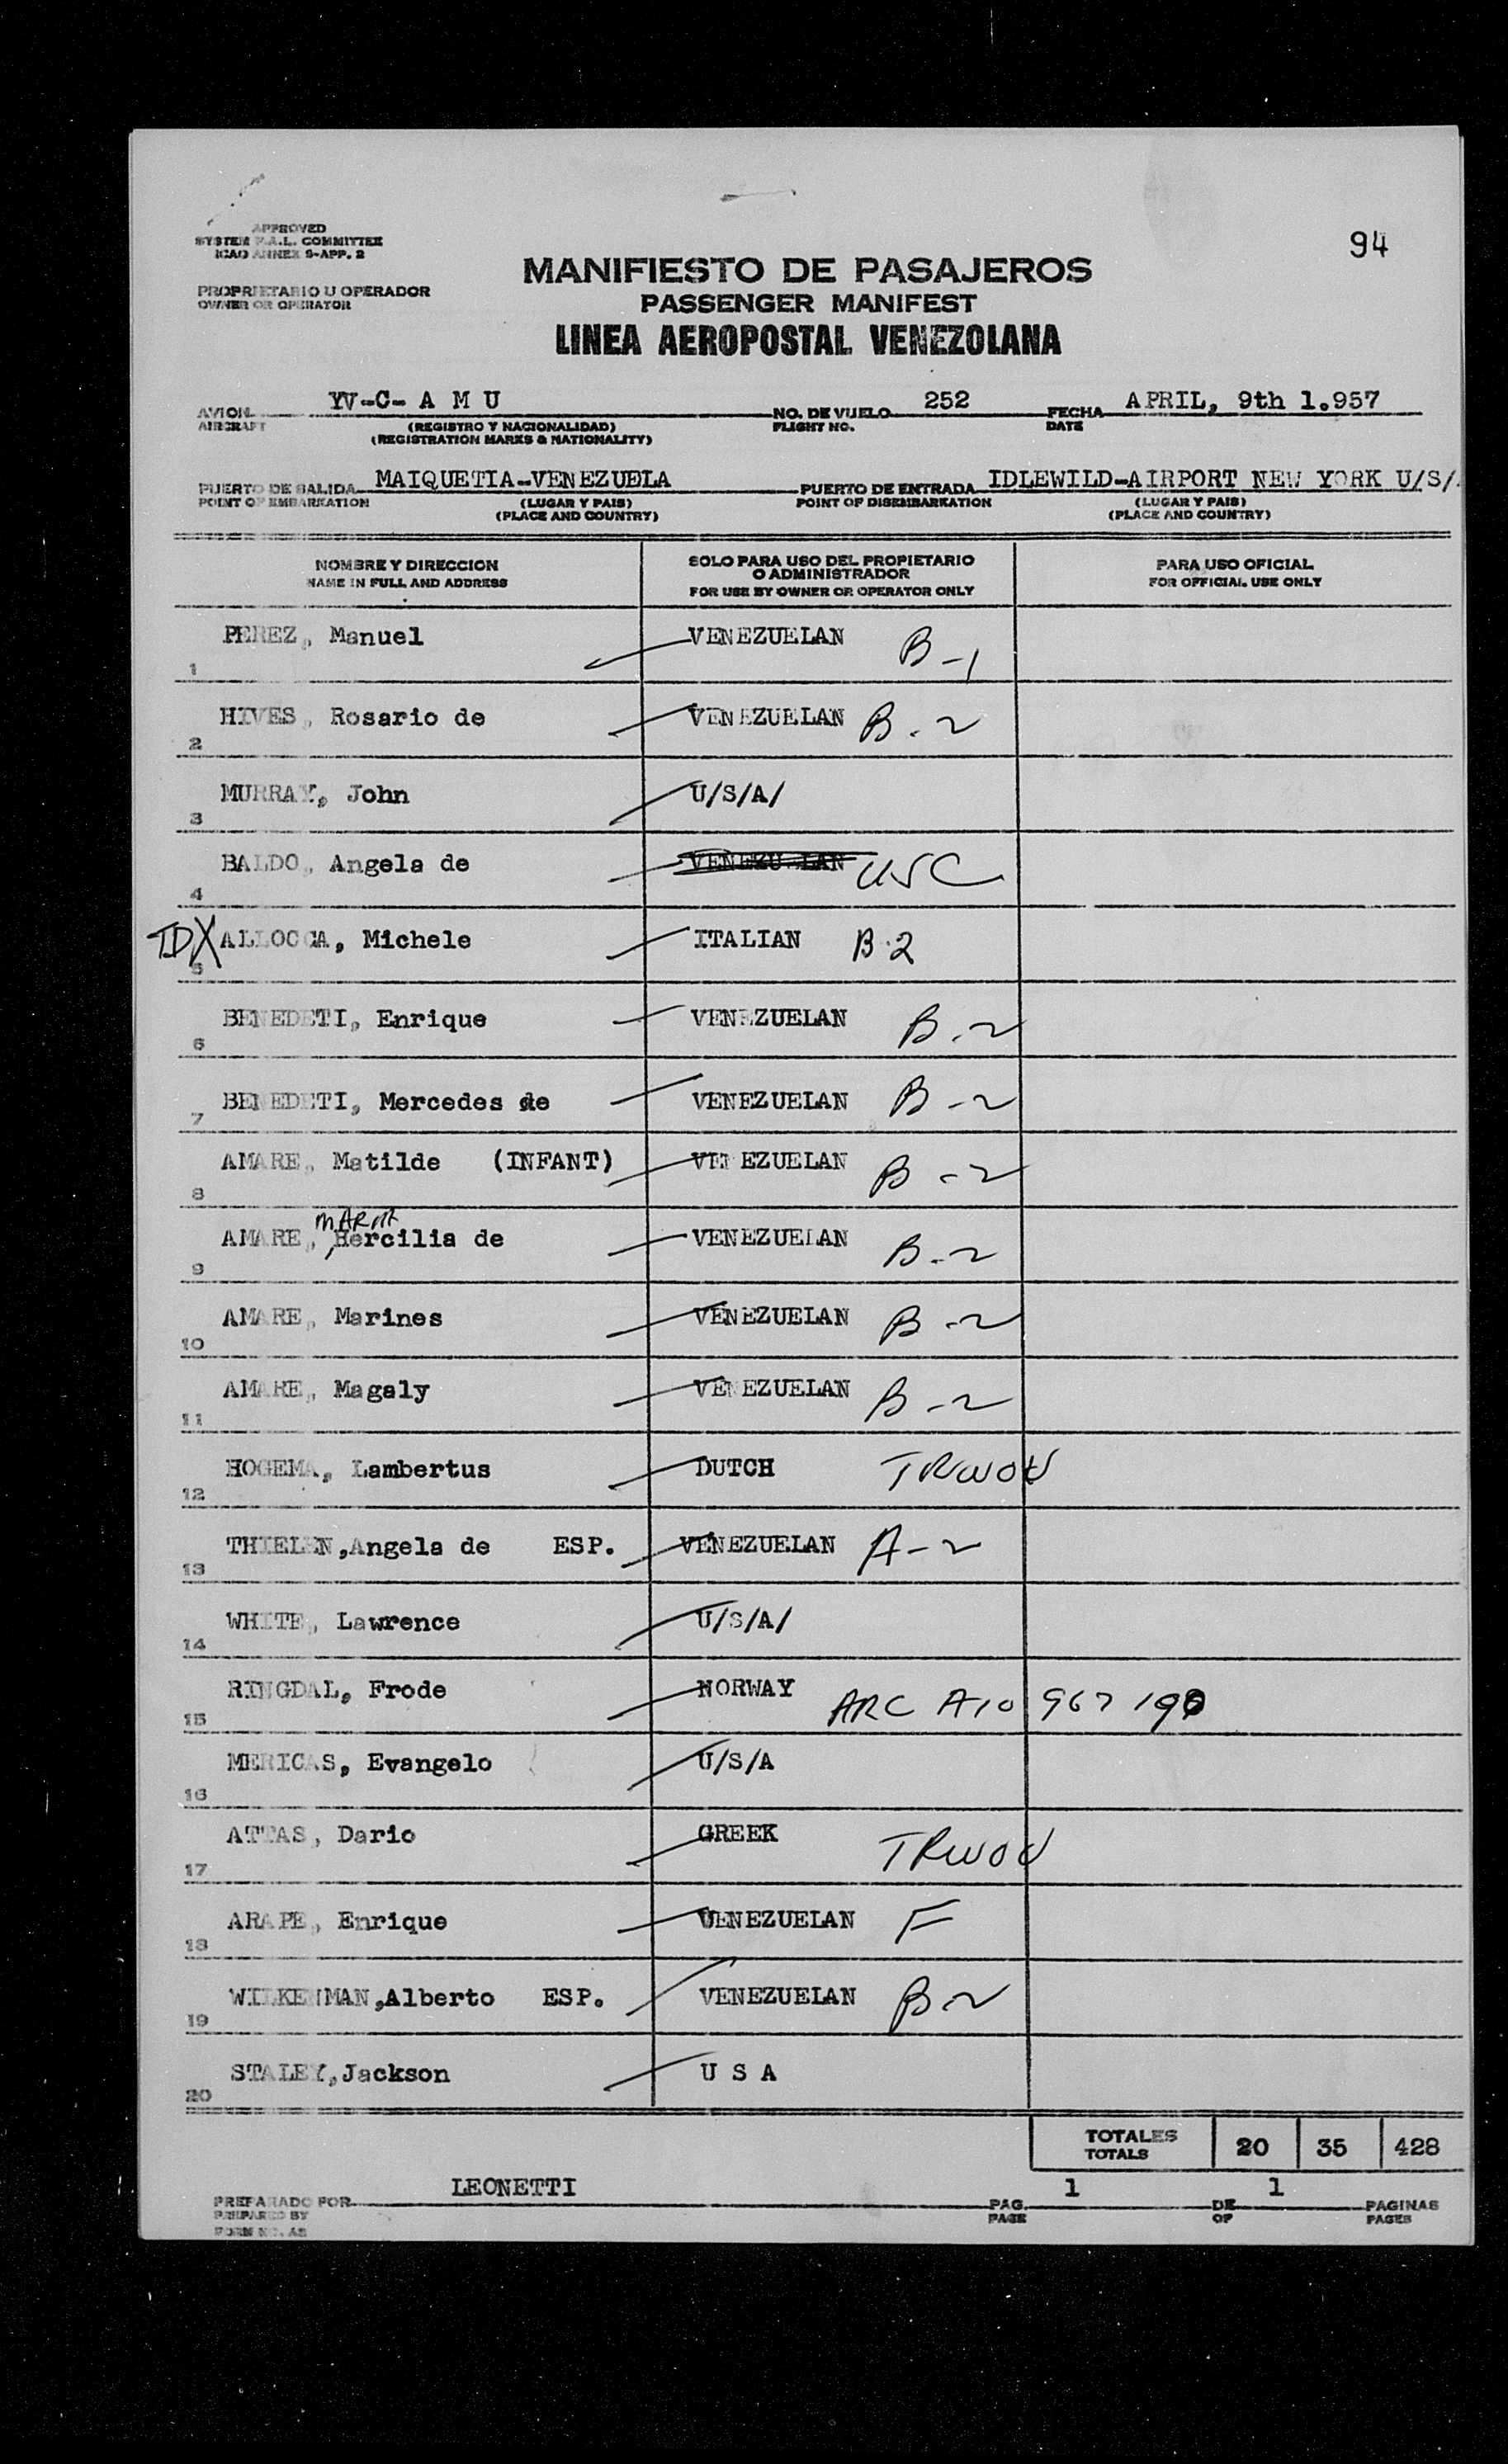 94
APPROVED
SYSTEM F.A.L. COMMITTEE
ICAO ANNEX 9-APP. 2
PROPRIETARIO U OPERADOR
OWNER OR OPERATOR
MANIFIESTO DE PASAJEROS
PASSENGER MANIFEST
LINEA AEROPOSTAL VENEZOLANA
AVION YV-C- A M U NO. DE VUELO 252 FECHA APRIL, 9th 1.957
AIRCRAFT (REGISTRO Y NACIONALIDAD) FLIGHT NO. DATE
(REGISTRATION MARKS & NATIONALITY)
PUERTO DE SALIDA MAIQUETIA-VENEZUELA PUERTO DE ENTRADA IDLEWILD-AIRPORT NEW YORK U/S/
POINT OF EMBARKATION (LUGAR Y PAIS) POINT OF DISEMBARKATION (LUGAR Y PAIS)
(PLACE AND COUNTRY) (PLACE AND COUNTRY)
NOMBRE Y DIRECCION SOLO PARA USO DEL PROPIETARIO PARA USO OFICIAL
O ADMINISTRADOR
NAME IN FULL AND ADDRESS FOR USE BY OWNER OR OPERATOR ONLY FOR OFFICIAL USE ONLY
1 PEREZ, Manuel VENEZUELAN B-1
2 HIVES, Rosario de VENEZUELAN B-2
3 MURRAY, John U/S/A/
4 BALDO, Angela de VENEZUELAN USC
TDX 5 ALLOCCA, Michele ITALIAN B-2
6 BENEDETI, Enrique VENEZUELAN B-2
7 BENEDETI, Mercedes de VENEZUELAN B-2
8 AMARE, Matilde (INFANT) VENEZUELAN B-2
MARIA
9 AMARE, Hercilia de VENEZUELAN B-2
10 AMARE, Marines VENEZUELAN B-2
11 AMARE, Magaly VENEZUELAN B-2
12 HOGEMA, Lambertus DUTCH TRWOV
13 THIELEN,Angela de ESP. VENEZUELAN A-2
14 WHITE, Lawrence U/S/A/
15 RINGDAL, Frode NORWAY ARC A10 967 190
16 MERICAS, Evangelo U/S/A
17 ATTAS, Dario GREEK TRWOV
18 ARAPE, Enrique VENEZUELAN F
19 WILKENMAN,Alberto ESP. VENEZUELAN B-2
20 STALEY,Jackson U S A
TOTALES 20 35 428
TOTALS
PREPARADO POR LEONETTI PAG. 1 DE 1 PAGINAS
PREPARED BY PAGE OF PAGES
FORM NO. A2